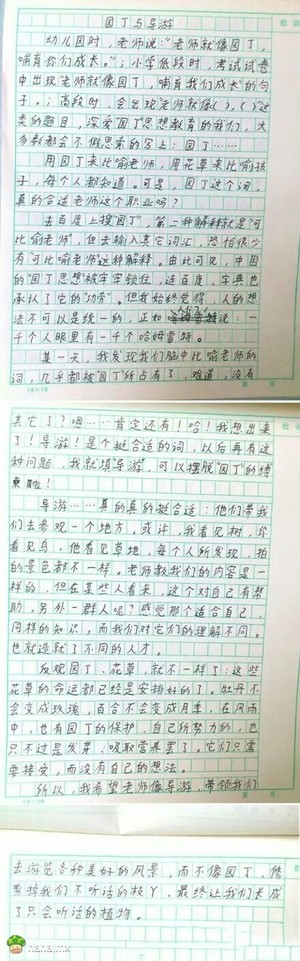 园丁与导游
幼儿园时，老师说："老师就像园丁，
哺育你们成长。"；小学低段时，考试试卷
中出现"老师就像园丁，哺育我们成长"的句
子。；高段时，会出现"老师就像( )，( )"这
类的题目，深爱"园丁"思想教育的我们，大
多数都会不假思索的写上：园丁……
用园丁来比喻老师，用花草来比喻孩
子，每个人都知道。可是，园丁这个词，
真的合适老师这个职业吗？
去百度上搜"园丁"，第二种解释就是"可
比喻老师"，但去输入其它词汇，恐怕很少
有"可比喻老师"这种解释。由此可见，中国
的"园丁思想"被牢牢锁住，连百度，字典也
承认了它的"功劳"。但我始终觉得，人的想
法不可以是统一的，正如 说：一
千个人眼里有一千个哈姆雷特。
某一天，我发现我们脑中比喻老师的
词，几乎都被"园丁"所占有了，难道，没有
其它了？嗯……肯定还有！哈！我想出来
了！导游！是个挺合适的词，以后再有这
种问题，我就填"导游"，可以摆脱"园丁"的缚
束啦！
导游……真的真的挺合适：他们带我
们去参观一个地方，或许，我看见树，你
看见鸟，他看见草地，每个人所发现，拍
的景色都不一样。老师教我们的内容是一
样的，但在某些人看来，这个对自己有帮
助，另外一群人呢？感觉那个适合自己，
同样的知识，而我们对它们的理解不同。
也就造就了不同的人才。
反观园丁、花草，就不一样了：这些
花草的命运都已经是安排好的了，牡丹不
会变成玫瑰，百合不会变成月季，在风雨
中，也有园丁的保护，自己所努力的，也
只不过是发芽、吸取营养罢了，它们只需
要接受，而没有自己的想法。
所以，我希望老师像导游，带领我们
去游览各种美好的风景，而不像园丁，修
剪掉我们不听话的枝丫，最终让我们长成
了只会听话的植物。